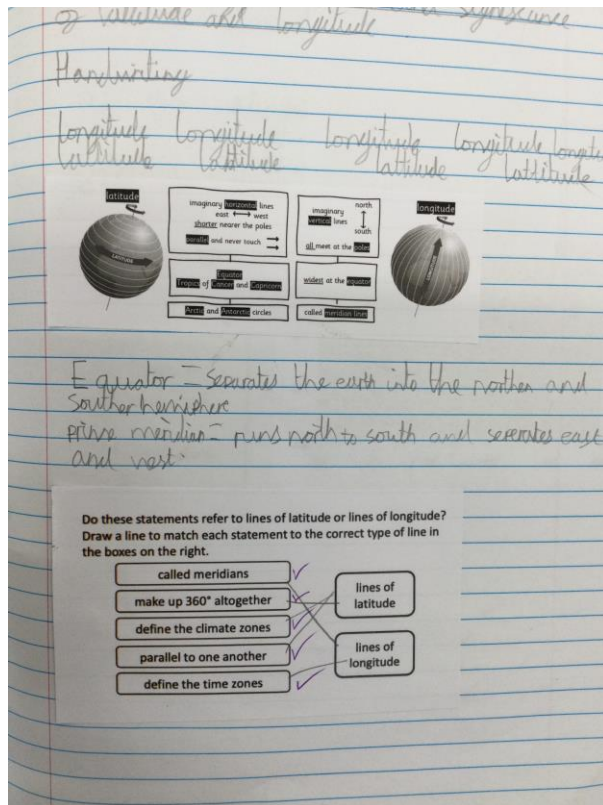 of lattitude and longitude
significance
Handwriting
Longitude Longitude Longitude Longitude
lattitude lattitude lattitude lattitude
latitude
LATITUDE
imaginary horizontal lines
east ⟷ west
shorter nearer the poles
parallel and never touch
Equator
Tropics of Cancer and Capricorn
Arctic and Antarctic circles
imaginary
vertical lines
north
south
all meet at the poles
widest at the equator
called meridian lines
longitude
LONGITUDE
Equator = separates the earth into the northen and
Souther hemisphere
prime meridian = runs north to south and seperates east
and west.
Do these statements refer to lines of latitude or lines of longitude?
Draw a line to match each statement to the correct type of line in
the boxes on the right.
called meridians
make up 360° altogether
define the climate zones
parallel to one another
define the time zones
lines of
latitude
lines of
longitude